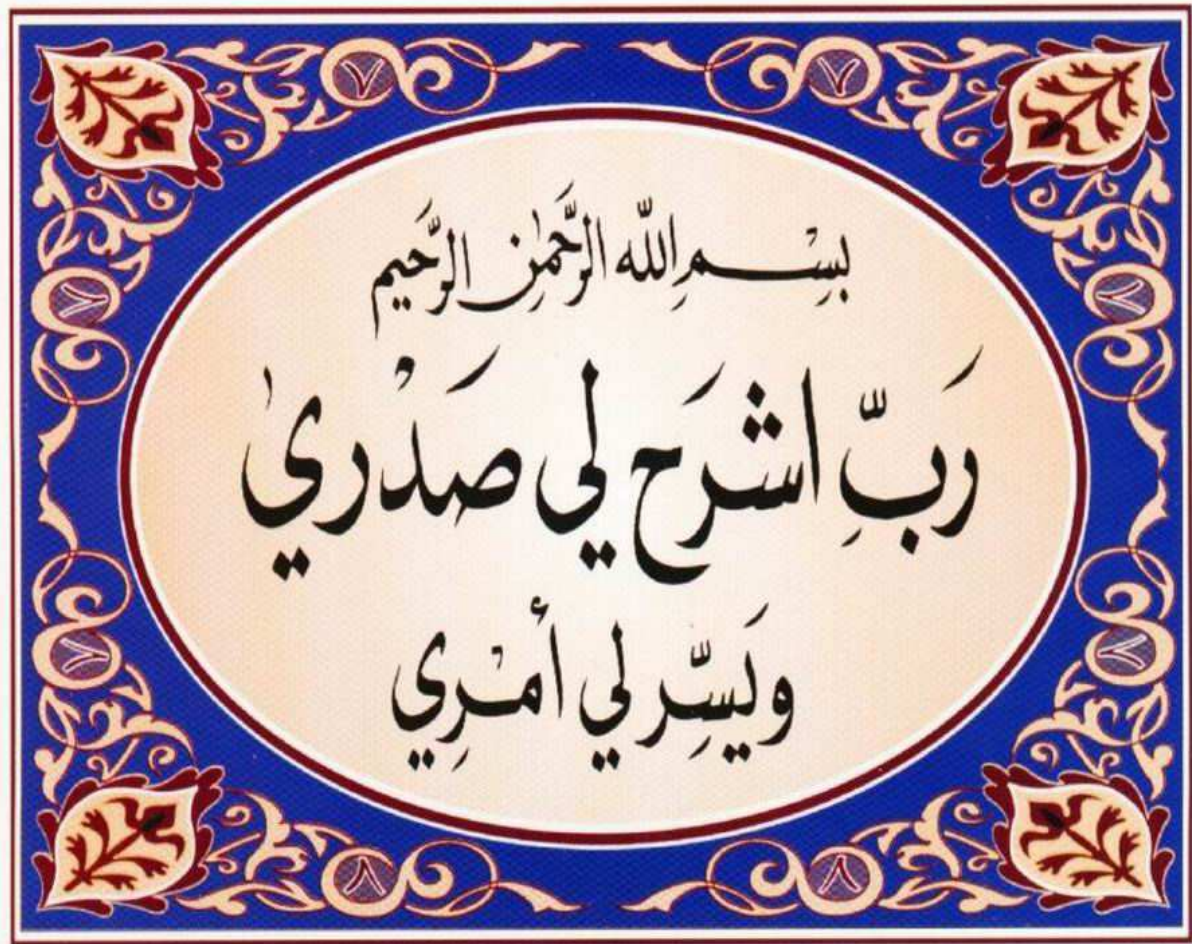 بِسْمِ اللّٰه الرَّحْمٰنِ الرَّحيم
رَبِّ اشْرَح لي صَدْري
وَيَسِّر لي أَمْرِي